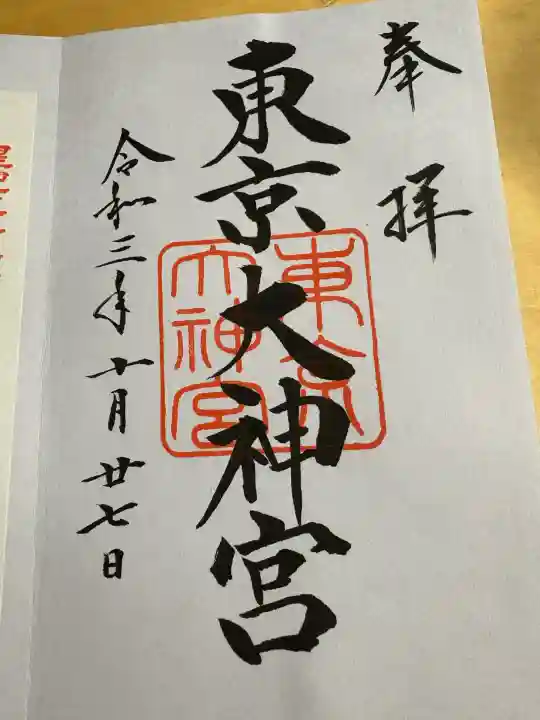 奉拝
東京大神宮
東京
大神宮
令和三年十月廿七日